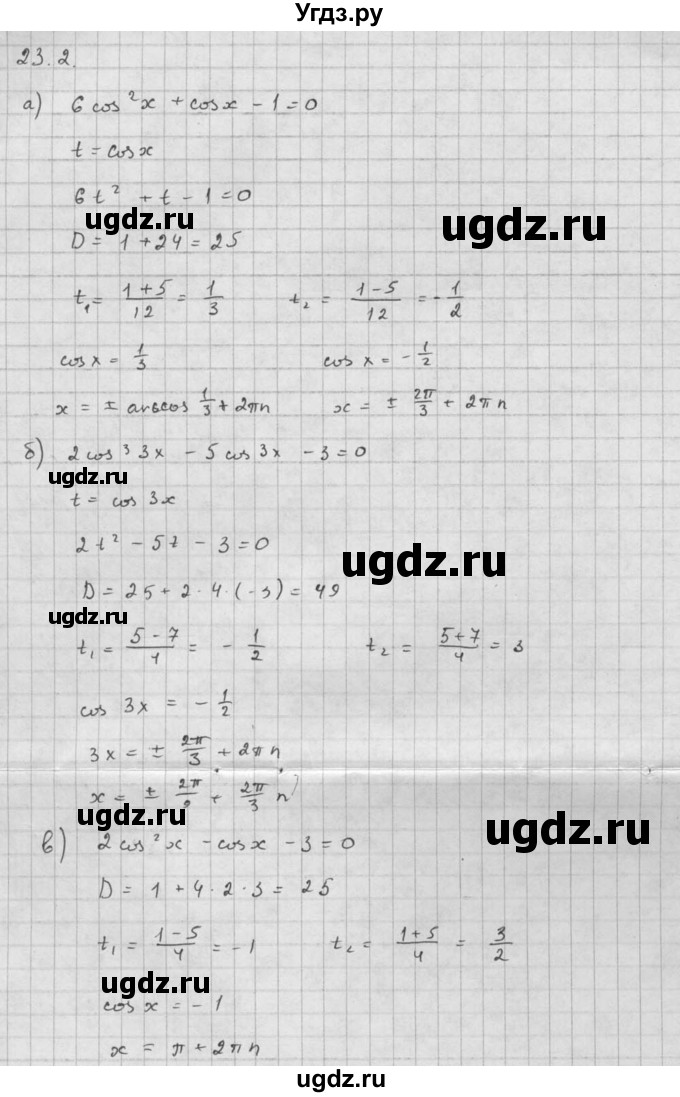 Угдз.ру
23.2.
а) 6 cos²x + cosx - 1 = 0
t = cosx
6t² + t - 1 = 0
ugdz.ru ugdz.ru
D = 1 + 24 = 25
t₁ = (1+5)/12 = 1/3 t₂ = (1-5)/12 = -1/2
cosx = 1/3 cos x = -1/2
x = ± arccos 1/3 + 2πn x = ± 2π/3 + 2πn
б) 2 cos³ 3x - 5 cos 3x - 3 = 0
ugdz.ru
t = cos 3x
2t² - 5t - 3 = 0
ugdz.ru
D = 25 + 2·4·(-3) = 49
ugdz.ru
t₁ = (5-7)/4 = -1/2 t₂ = (5+7)/4 = 3
cos 3x = -1/2
3x = ± 2π/3 + 2πn
x = ± 2π/ + 2π/3 n
ugdz.ru ugdz.ru
в) 2 cos²x - cosx - 3 = 0
D = 1 + 4·2·3 = 25
t₁ = (1-5)/4 = -1 t₂ = (1+5)/4 = 3/2
ugdz.ru
cosx = -1
x = π + 2πn
ugdz.ru